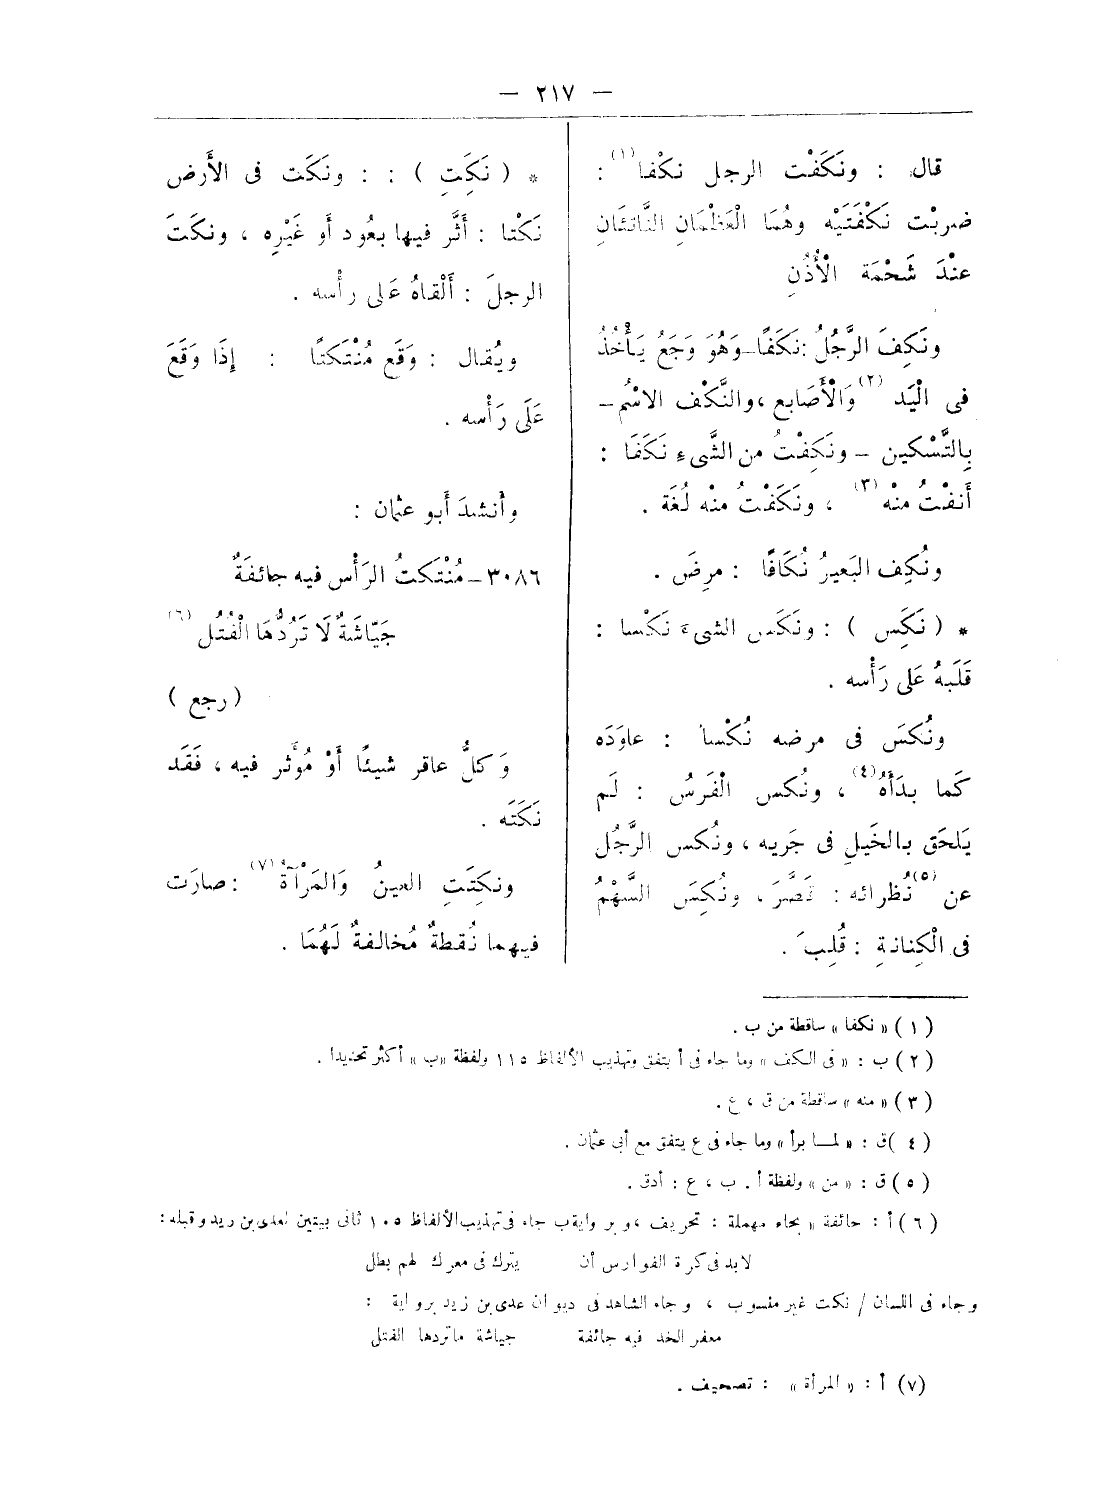 — ٢١٧ —
قال : ونَكَفْت الرجل نكْفا(١) :
ضربْت نَكْفَتَيْه وهُما الْعَظْمَانِ النَّاتئَانِ
عنْدَ شَحْمَة الْأُذُنِ
ونَكِفَ الرَّجُلُ : نَكَفًا – وَهُوَ وَجَعُ يَأْخُذُ
فى الْيَد (٢) وَالْأَصَابع ، والنَّكْف الاسْمُ –
بِالتَّسْكين – ونَكِفْتُ من الشَّىءِ نَكَفَا :
أَنفْتُ منْه (٣) ، ونَكَفْتُ منْه لُغَة .
ونُكِف البَعيرُ نُكَافًا : مرِضَ .
* ( نَكَس ) : ونَكَس الشىءَ نَكْسا :
قَلَبهُ عَلى رَأْسه .
ونُكسَ فى مرضه نُكْسا : عاوَدَه
كَما بدَأَهُ (٤) ، ونُكس الْفَرسُ : لَم
يَلحَق بالخَيلِ فى جَريه ، ونُكس الرَّجُل
عن (٥) نُظرائه : قَصَّرَ ، ونُكِسَ السَّهْمُ
فى الْكِنانةِ : قُلِبَ .
* ( نَكَتِ ) : : ونكَت فى الأَرض
نَكْتا : أَثَّر فيها بعُود أو غَيْرِه ، ونكَتَ
الرجلَ : أَلْقاهُ عَلى رأْسه .
ويُقال : وَقَع مُنْتَكتًا : إذَا وَقَعَ
عَلَى رَأْسه .
وأنشدَ أبو عثمان :
٣٠٨٦ – مُنْتكتُ الرَأْس فيه جائفَةُ
جَيّاشَةٌ لَا تَرُدُّهَا الْفُتُل (٦)
( رجع )
وَكلُّ عاقر شيئًا أَوْ مُؤَثر فيه ، فَقَد
نَكَتَه .
ونكِتَتِ العينُ وَالمَرْآةُ (٧) : صارَت
فيهما نُقطةٌ مُخالفةٌ لَهُمَا .
( ١ ) « نكفا » ساقطة من ب .
( ٢ ) ب : « فى الكف » وما جاء فى أ يتفق وتهذيب الألفاظ ١١٥ ولفظة « ب » أكثر تحديدا .
( ٣ ) « منه » ساقطة من ق ، ع .
( ٤ ) ق : « لمــا برأ » وما جاء فى ع يتفق مع أبى عثمان .
( ٥ ) ق : « من » ولفظة أ . ب ، ع : أدق .
( ٦ ) أ : حائفة « بحاء مهملة : تحريف ، وبرواية ب جاء فى تهذيب الألفاظ ١٠٥ ثانى بيتين لعدى بن زيد وقبله :
لابد فى كرة الفوارس أن يترك فى معرك لهم بطل
وجاء فى اللسان / نكت غير منسوب ، وجاء الشاهد فى ديوان عدى بن زيد برواية :
معفر الخد فيه جائفة جياشة ماتردها الفتل
(٧) أ : « المرأة » : تصحيف .